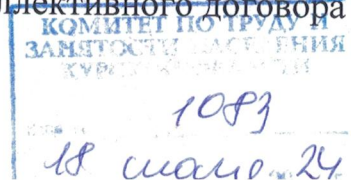 ллективного договора
КОМИТЕТ ПО ТРУДУ И
ЗАНЯТОСТИ НАСЕЛЕНИЯ
КУРСКОЙ
1083
18 июля 24